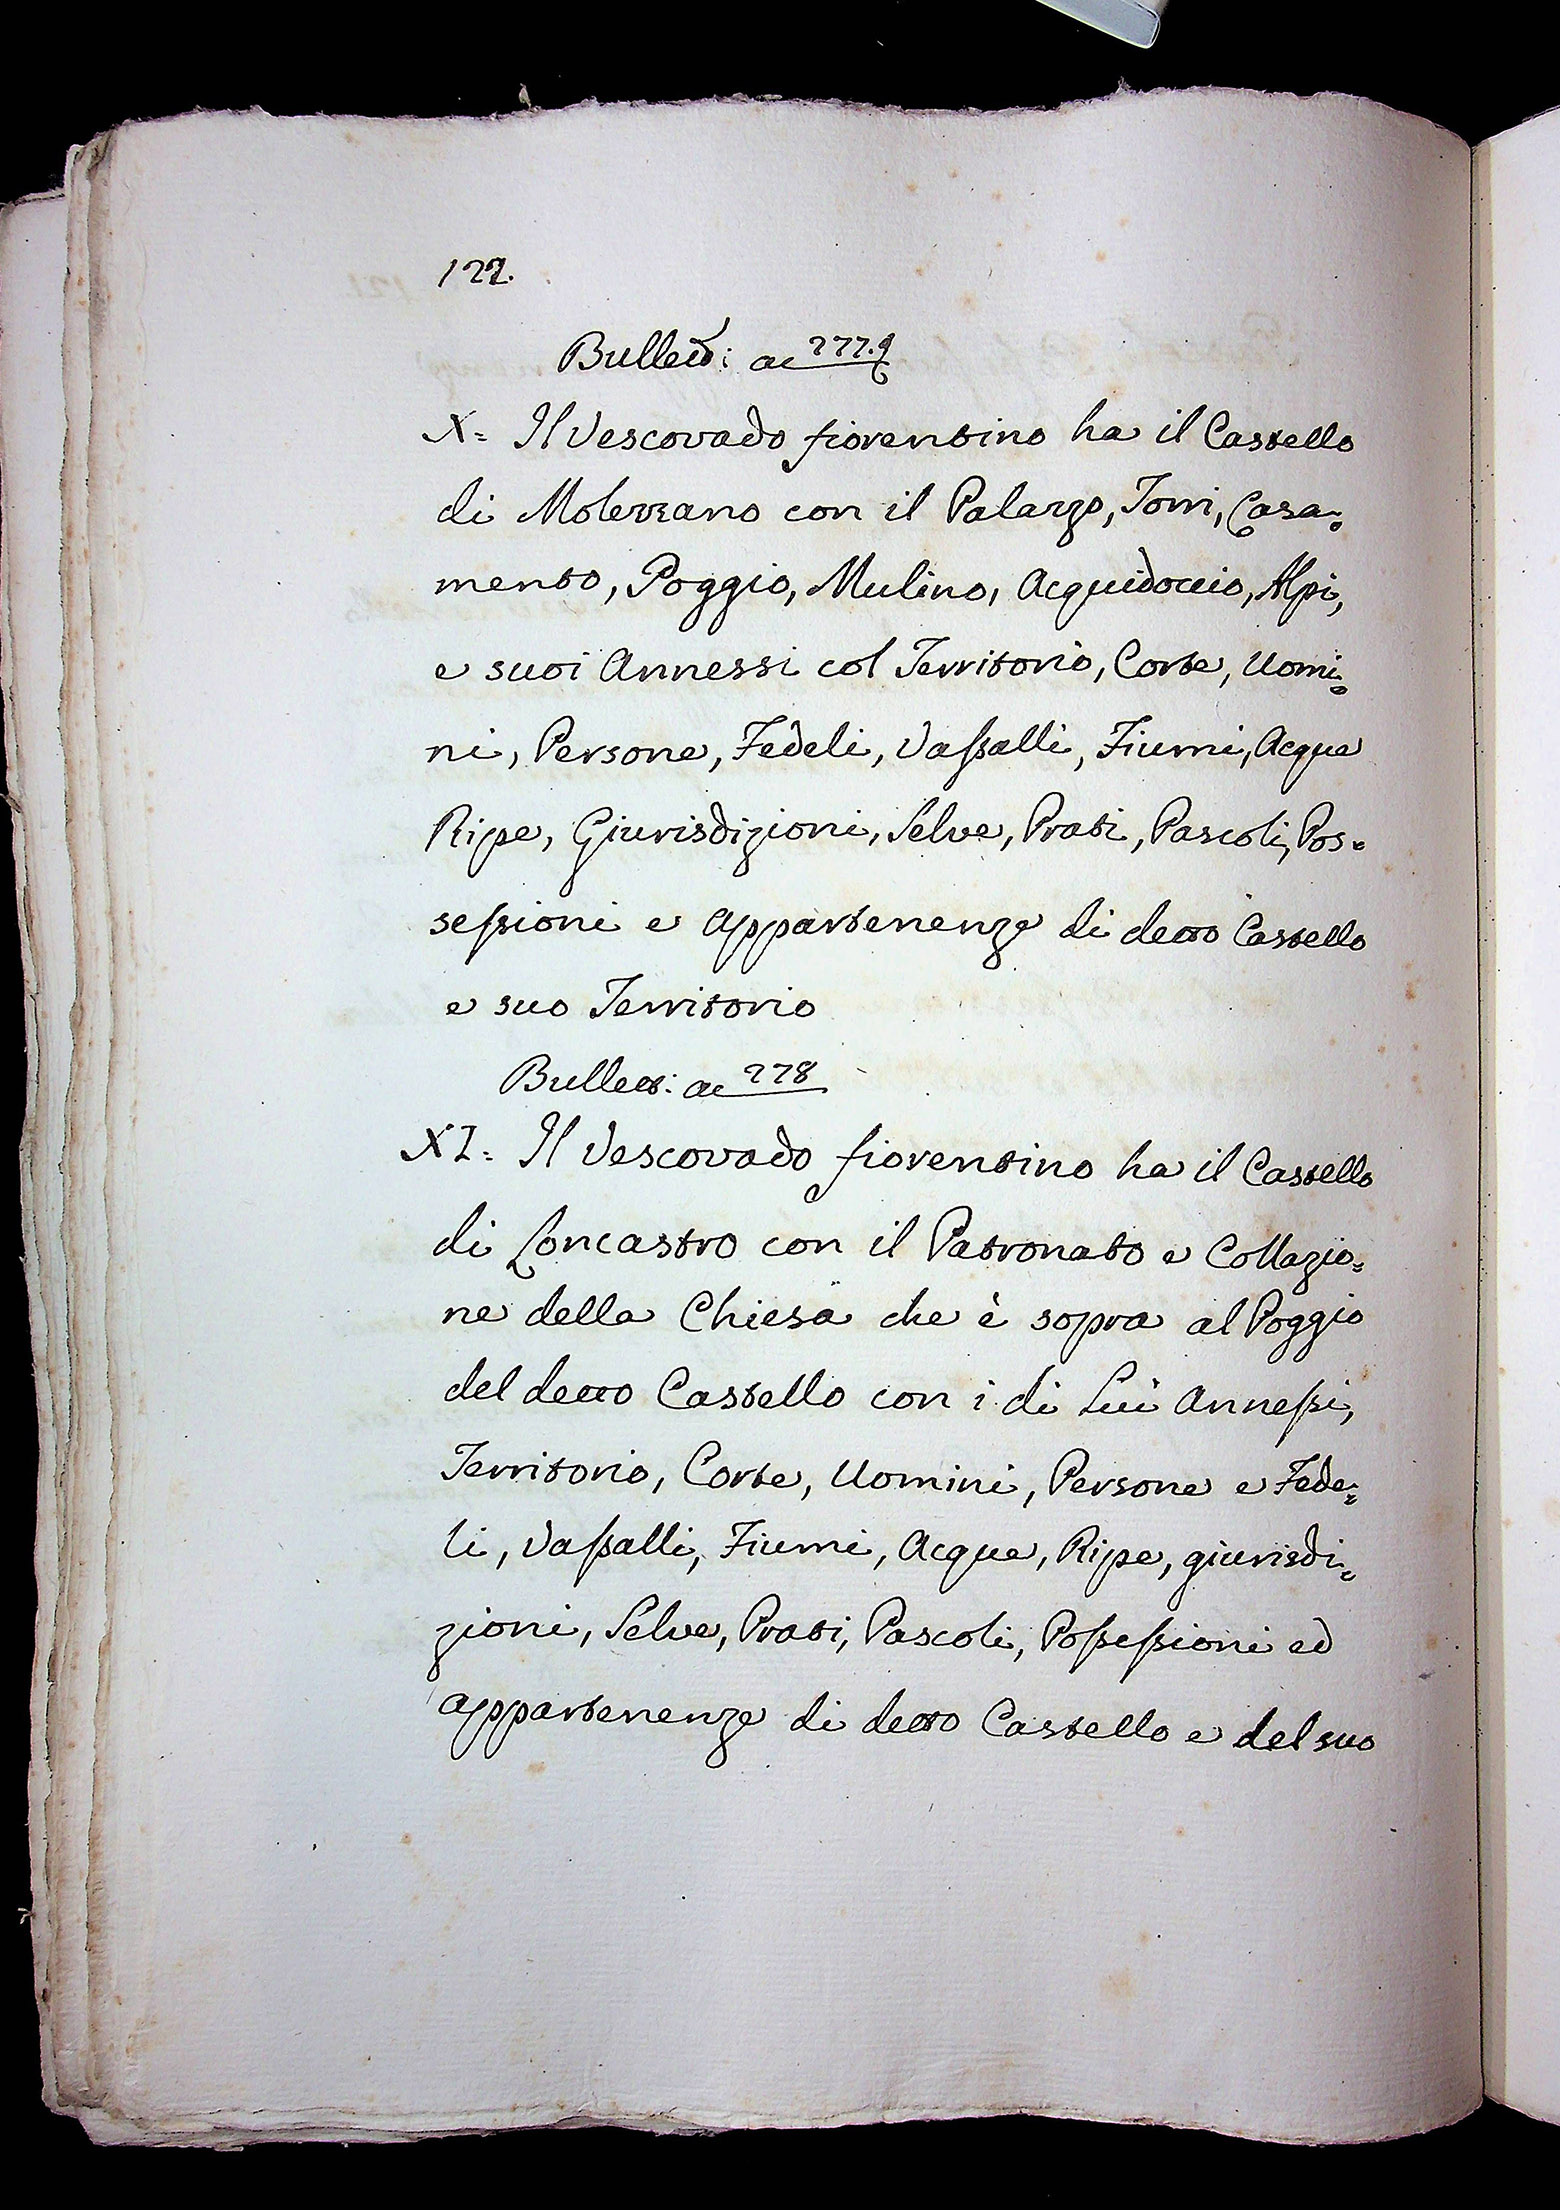 122.
Bullett: ac 277.
X= Il Vescovado fiorentino ha il Castello
di Molezzano con il Palazzo, Torri, Casa=
mento, Poggio, Mulino, Acquidoccio, Alpi,
e suoi Annessi col Territorio, Corte, Uomi=
ni, Persone, Fedeli, Vassalli, Fiumi, Acque
Ripe, Giurisdizioni, Selve, Prati, Pascoli, Pos=
sessioni e appartenenze di detto Castello
e suo Territorio
Bullett: ac 278
XI= Il Vescovado fiorentino ha il Castello
di Loncastro con il Patronato e Collazio=
ne della Chiesa che è sopra al Poggio
del detto Castello con i di Lui Annessi,
Territorio, Corte, Uomini, Persone e Fede=
li, Vassalli, Fiumi, Acque, Ripe, giurisdi=
zioni, Selve, Prati, Pascoli, Possessioni ed
appartenenze di detto Castello e del suo